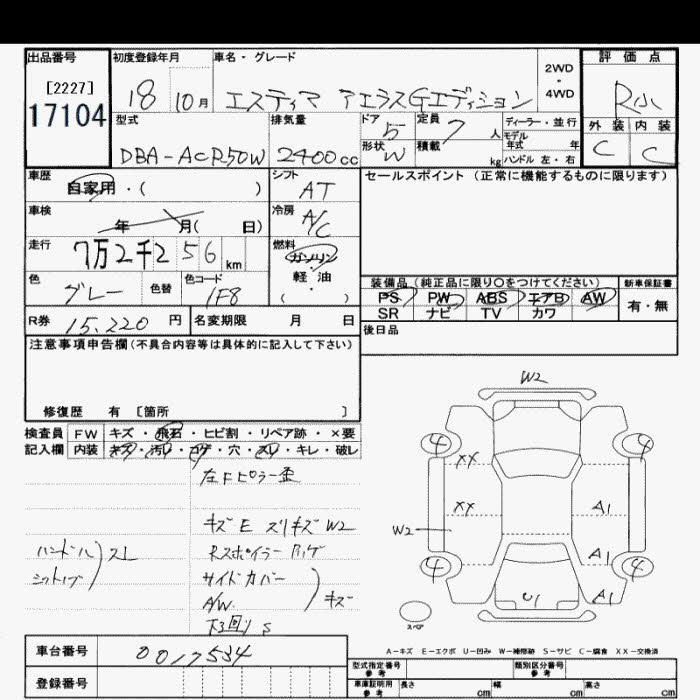 出品番号 初度登録年月 車名・グレード 評価点
[2227] 18 10月 エスティマ アエラスGエディション 2WD・4WD R小
17104
型式 排気量 ドア 定員 ディーラー・並行 外装 内装
DBA-ACR50W 2400cc 5 7人 モデル年式 年 C C
形状 W 積載 kg ハンドル 左・右
車歴 シフト セールスポイント (正常に機能するものに限ります)
自家用・( ) AT
車検 冷房
年 月( 日) A/C
走行 燃料
7万2千256km ガソリン・軽油
( )
色 色替 色コード 装備品 (純正品に限り○をつけてください) 新車保証書
グレー 1F8 PS PW ABS エアB AW 有・無
SR ナビ TV カワ
R券 15,220円 名変期限 月 日 後日品
注意事項申告欄(不具合内容等は具体的に記入して下さい)
修復歴 有 [箇所 ]
検査員 FW キズ・飛石・ヒビ割・リペア跡・×要
記入欄 内装 キズ・汚レ・コゲ・穴・スレ・キレ・破レ
左Fピラー歪
キズE スリキズ W2
ハンドル Rスポイラー
シフトノブ スレ サイドカバー
A/W キズ
下回りS
W2
4 4
XX
XX A1
W2
A1
4 4
U1 A1
スペア
A-キズ E-エクボ U-凹み W-補修跡 S-サビ C-腐食 XX-交換済
車台番号 0017534
登録番号
型式指定番号 参考 類別区分番号 参考
車庫証明用 参考 長さ cm 幅 cm 高さ cm